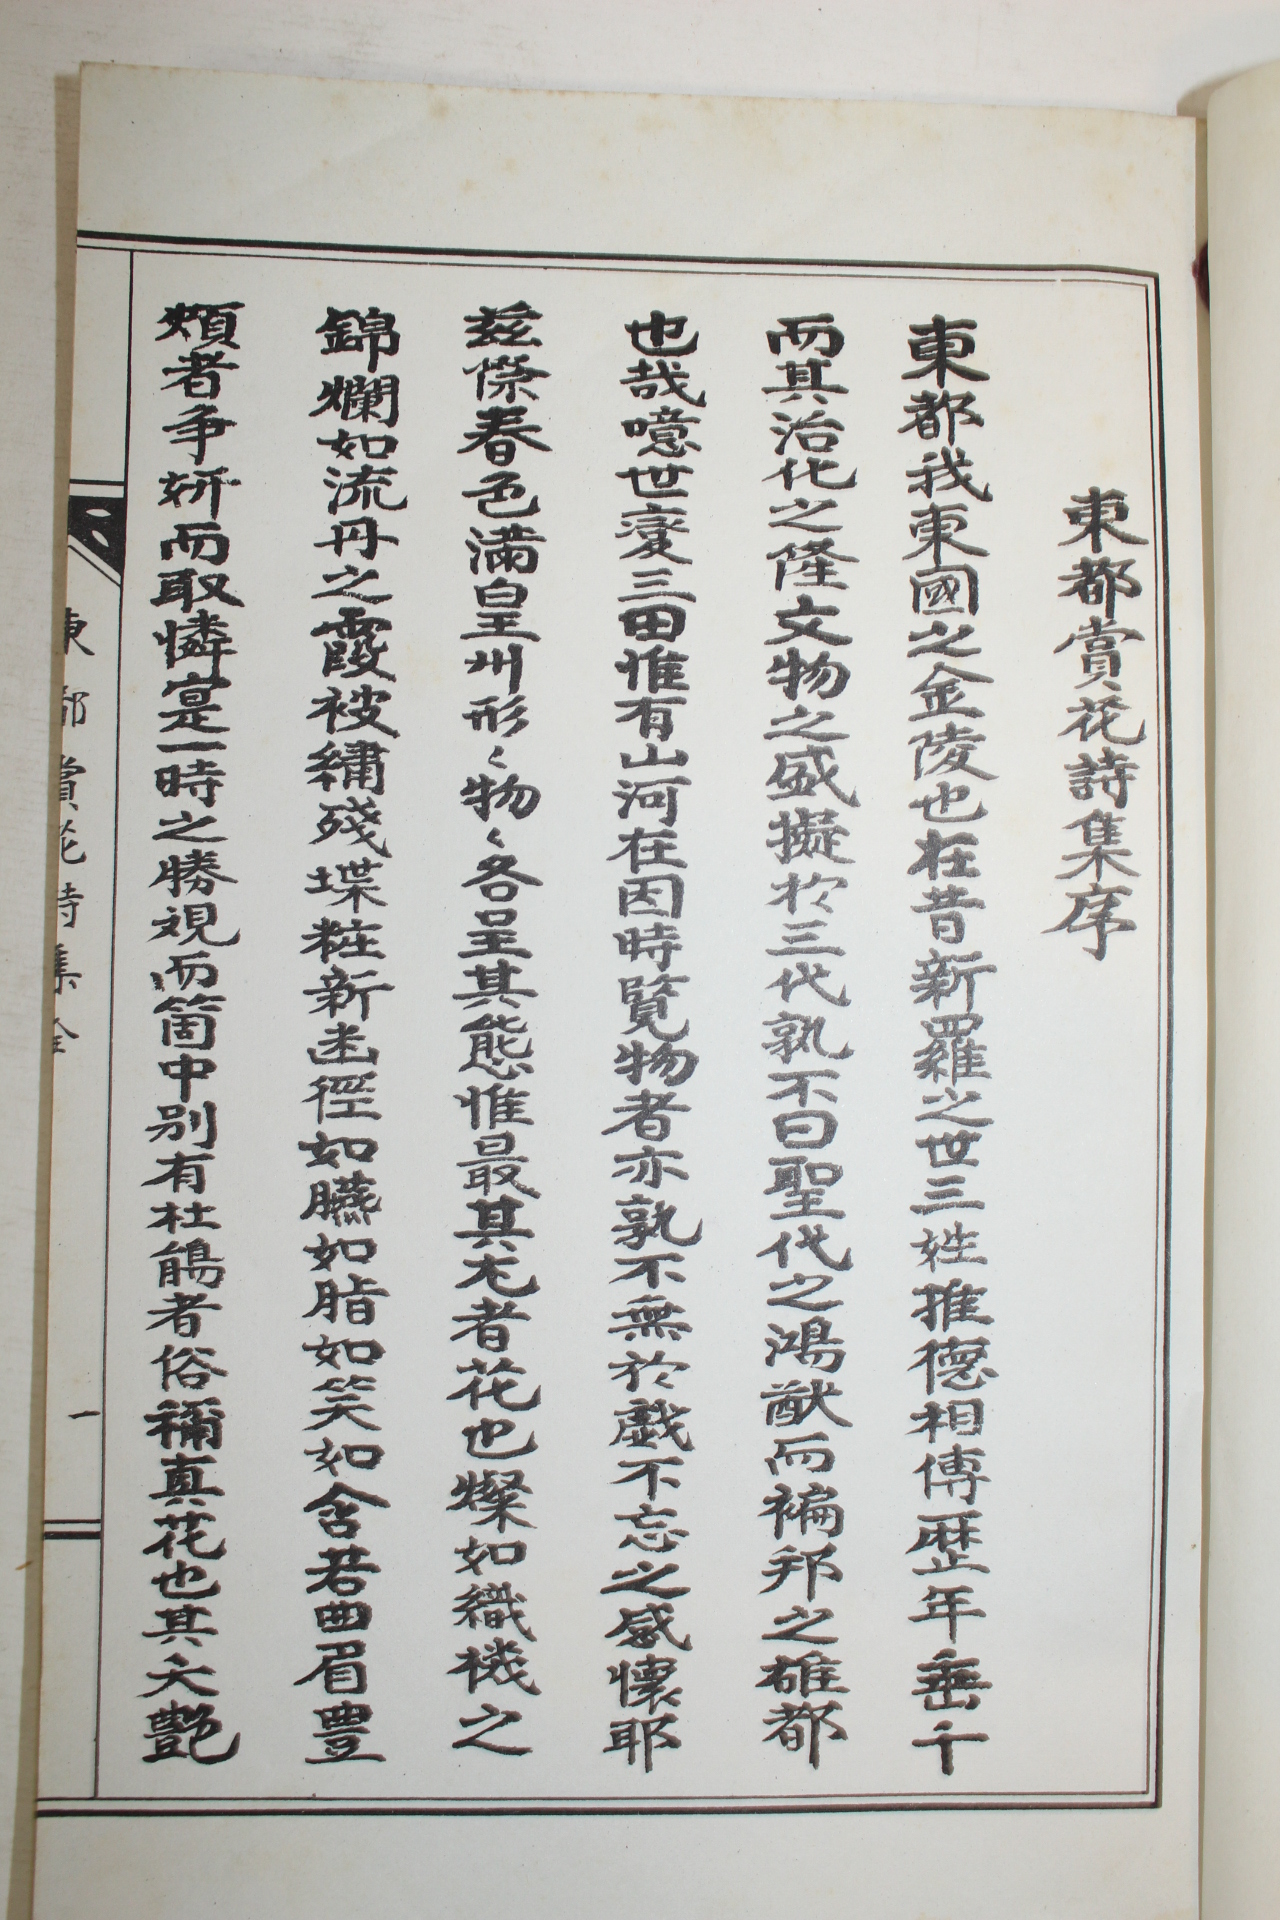 東都賞花詩集序
東都我東國之金陵也在昔新羅之世三姓推德相傳歷年垂千
而其治化之隆文物之盛擬於三代孰不曰聖代之鴻猷而褊邦之雄都
也哉噫世變三田惟有山河在因時覽物者亦孰不無於戱不忘之感懷耶
玆際春色滿皇州形〻物〻各呈其態惟最其尤者花也燦如織機之
錦爛如流丹之霞被繡殘堞粧新迷徑如臙如脂如笑如含若曲眉豊
頰者争姸而取憐寔一時之勝覌而箇中別有杜鵑者俗稱眞花也其夭艶
東都賞花詩集全
一